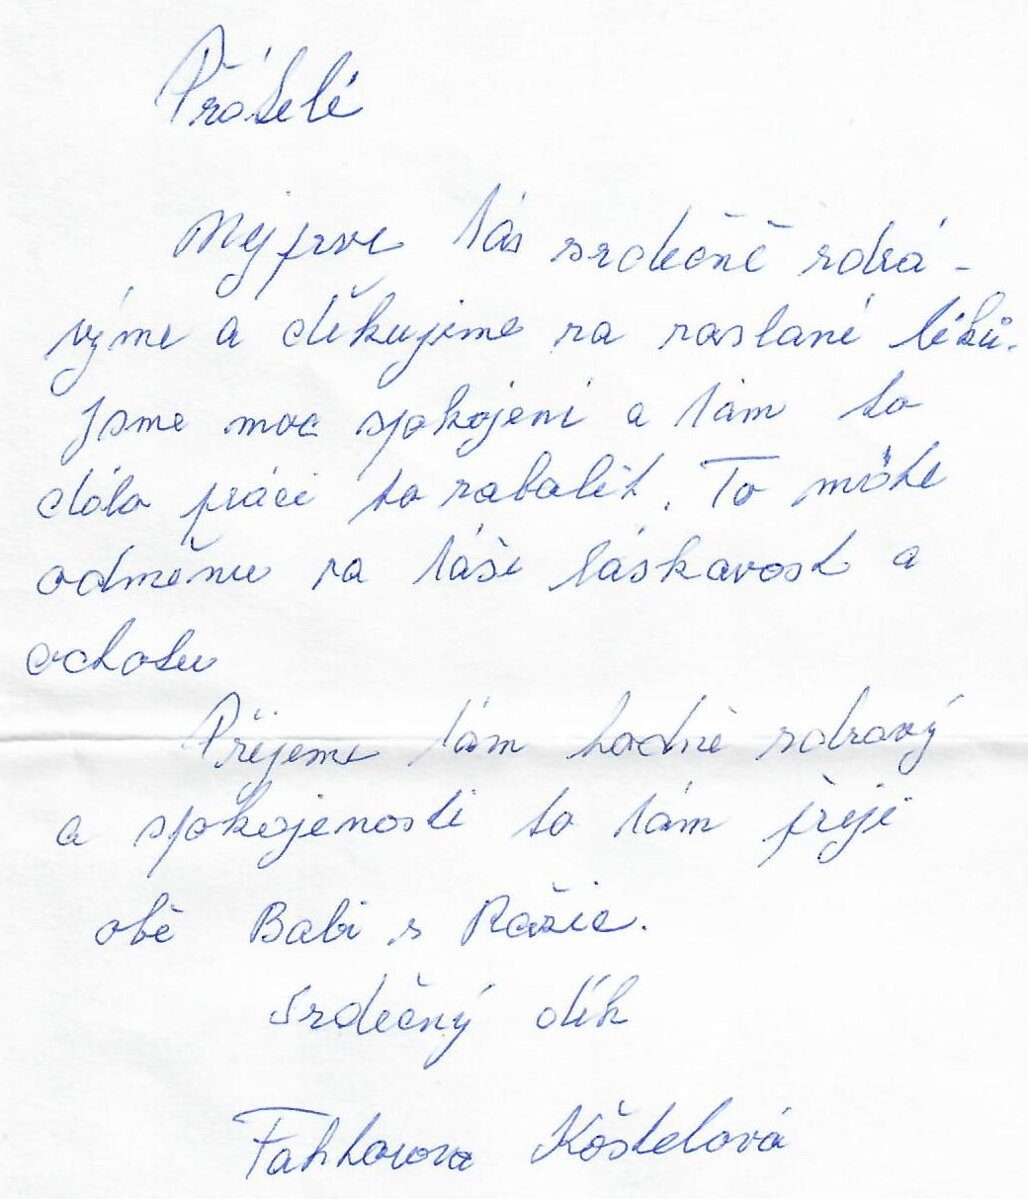 Přátelé
Nejprve Vás srdečně zdra-
výme a děkujeme za zaslané léků.
Jsme moc spokojeni a Vám to
dálo práci to zabalit. To može
odměnu za Váši láskavost a
ochotu
Přejeme Vám hodně zdravý
a spokojenosti to Vám přeji
obě Babi s
Srdečný dík
Košťelová